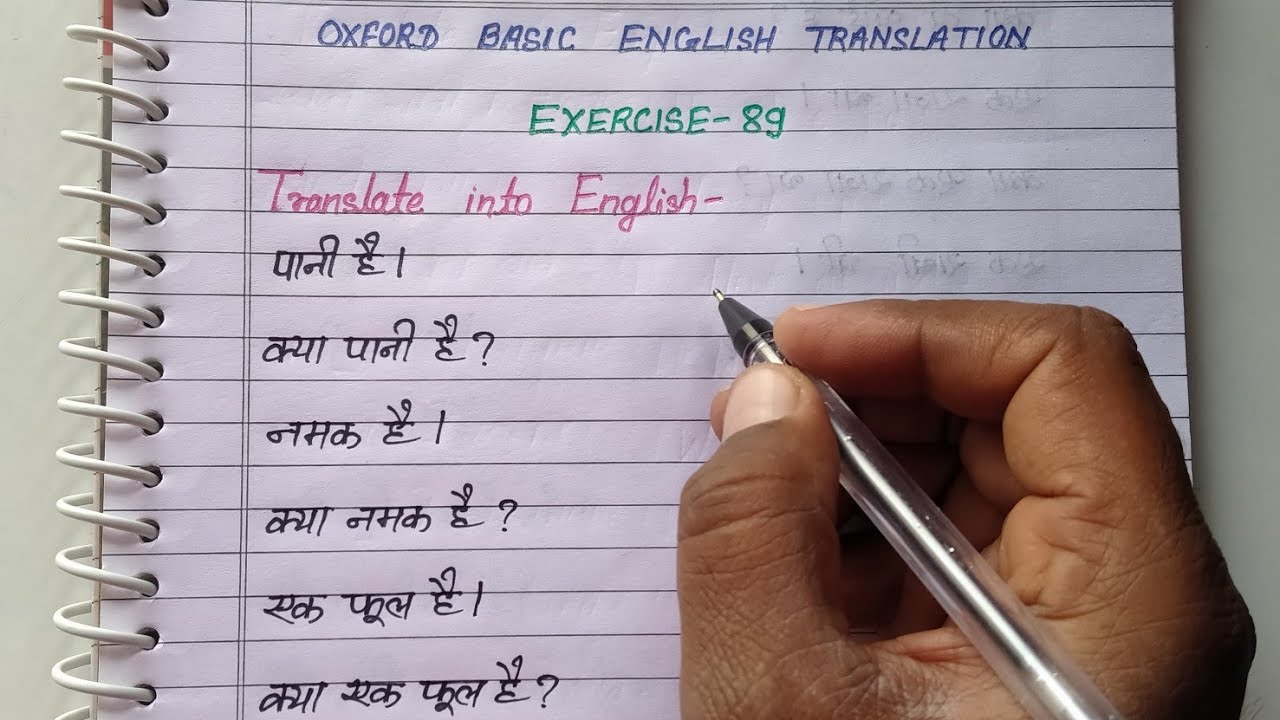 OXFORD BASIC ENGLISH TRANSLATION
EXERCISE-89
Translate into English-
पानी है।
क्या पानी है?
नमक है।
क्या नमक है?
एक फूल है।
क्या एक फूल है?